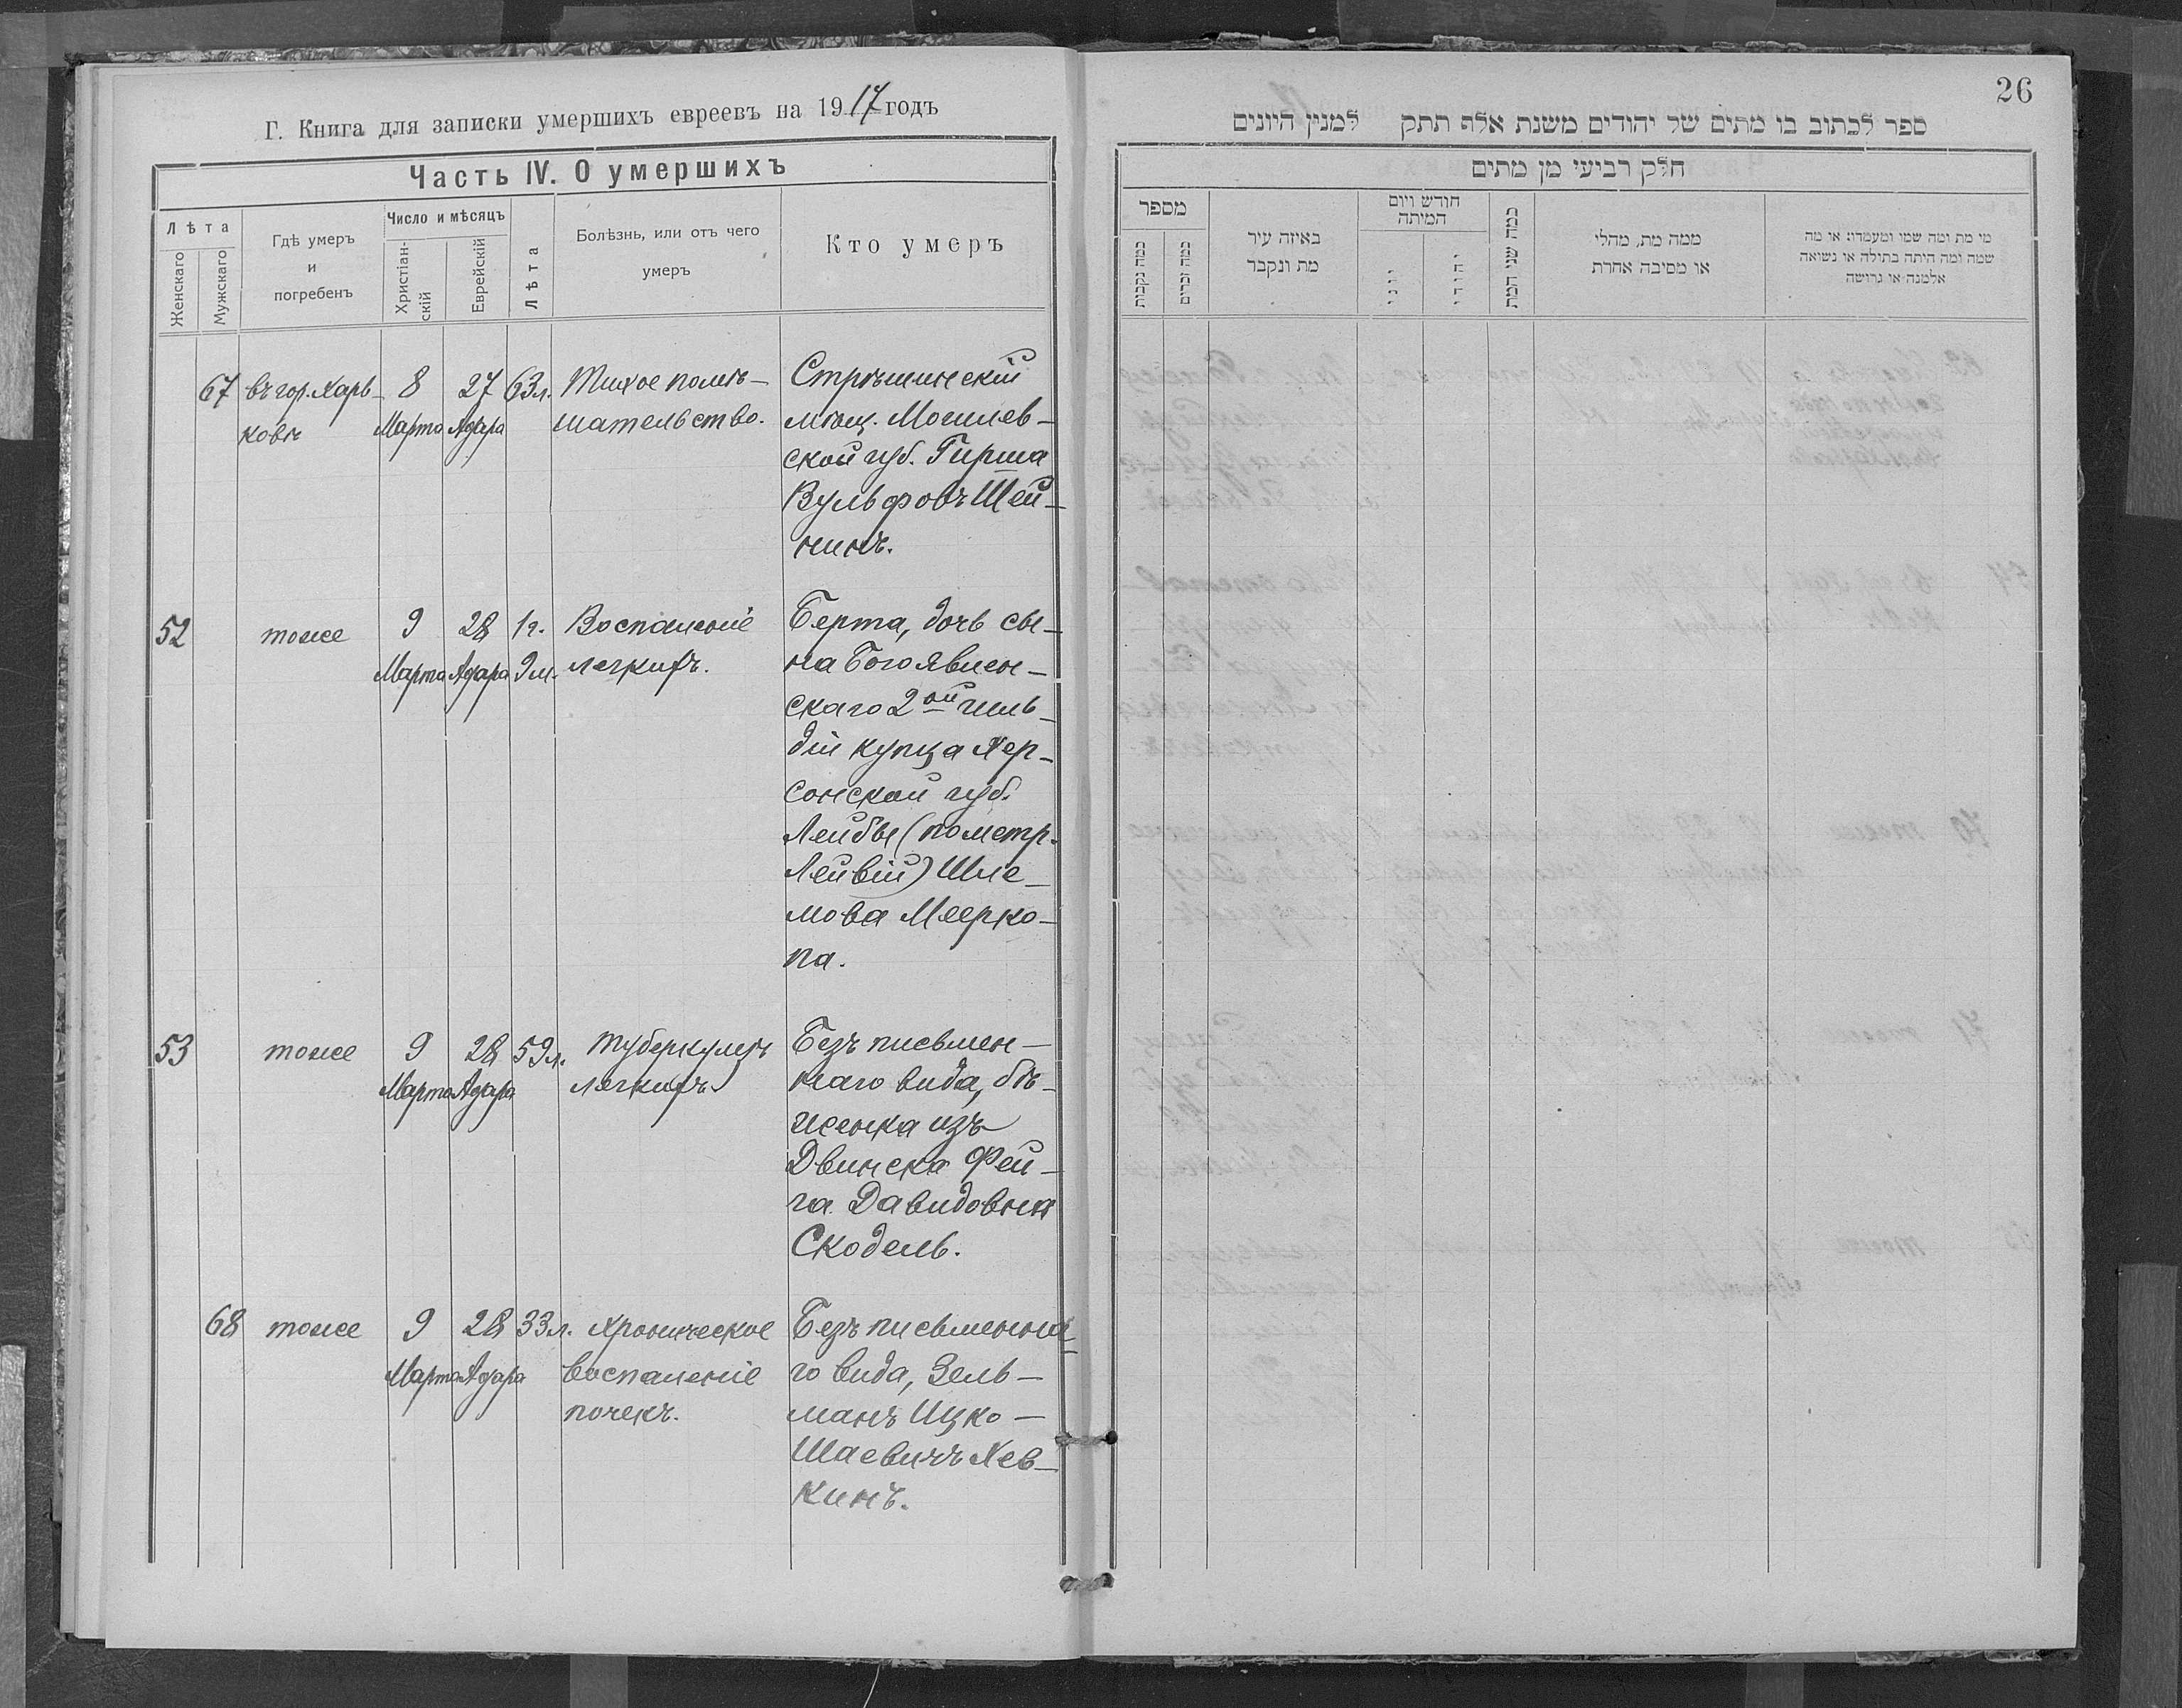 Г. Книга для записки умершихъ евреевъ на 1917 годъ
Часть IV. О умершихъ
Лѣта
Женскаго
Мужскаго
Гдѣ умеръ
и
погребенъ
Число и мѣсяцъ
Христіан-
скій
Еврейскій
Лѣта
Болѣзнь, или отъ чего
умеръ
Кто умеръ
67
въ гор. Харь-
ковѣ
8
Марта
27
Адара
63 л.
Тихое помѣ-
шательство.
Стрѣшинскій
мѣщ. Могилев-
ской губ. Гирша
Вульфовъ Шей-
нинъ.
52
тоже
9
Марта
28
Адара
1 г.
9 м.
Воспаленіе
легкихъ.
Берта, дочь сы-
на Богоявлен-
скаго 2ой гиль-
діи купца Хер-
сонской губ.
Лейбы (по метр.
Лейвій) Шле-
мова Меерко-
па.
53
тоже
9
Марта
28
Адара
59 л.
Туберкулезъ
легкихъ.
Безъ письмен-
наго вида, бѣ-
женка изъ
Двинска Фей-
га Давидовна
Скодель.
68
тоже
9
Марта
28
Адара
33 л.
Хроническое
воспаленіе
почекъ.
Безъ письменна-
го вида, Зель-
манъ Ицко-
Шаевичъ Хев-
кинъ.
26
ספר לכתוב בו מתים של יהודים משנת אלף תתק למנין היונים
חלק רביעי מן מתים
מספר
כמה נקבות
כמה זכרים
באיזה עיר
מת ונקבר
חודש ויום
המיתה
יוני
יהודי
כמה שני המת
ממה מת, מחלי
או מסיבה אחרת
מי מת ומה שמו ומעמדו: או מה
שמה ומה היתה בתולה או נשואה
אלמנה או גרושה